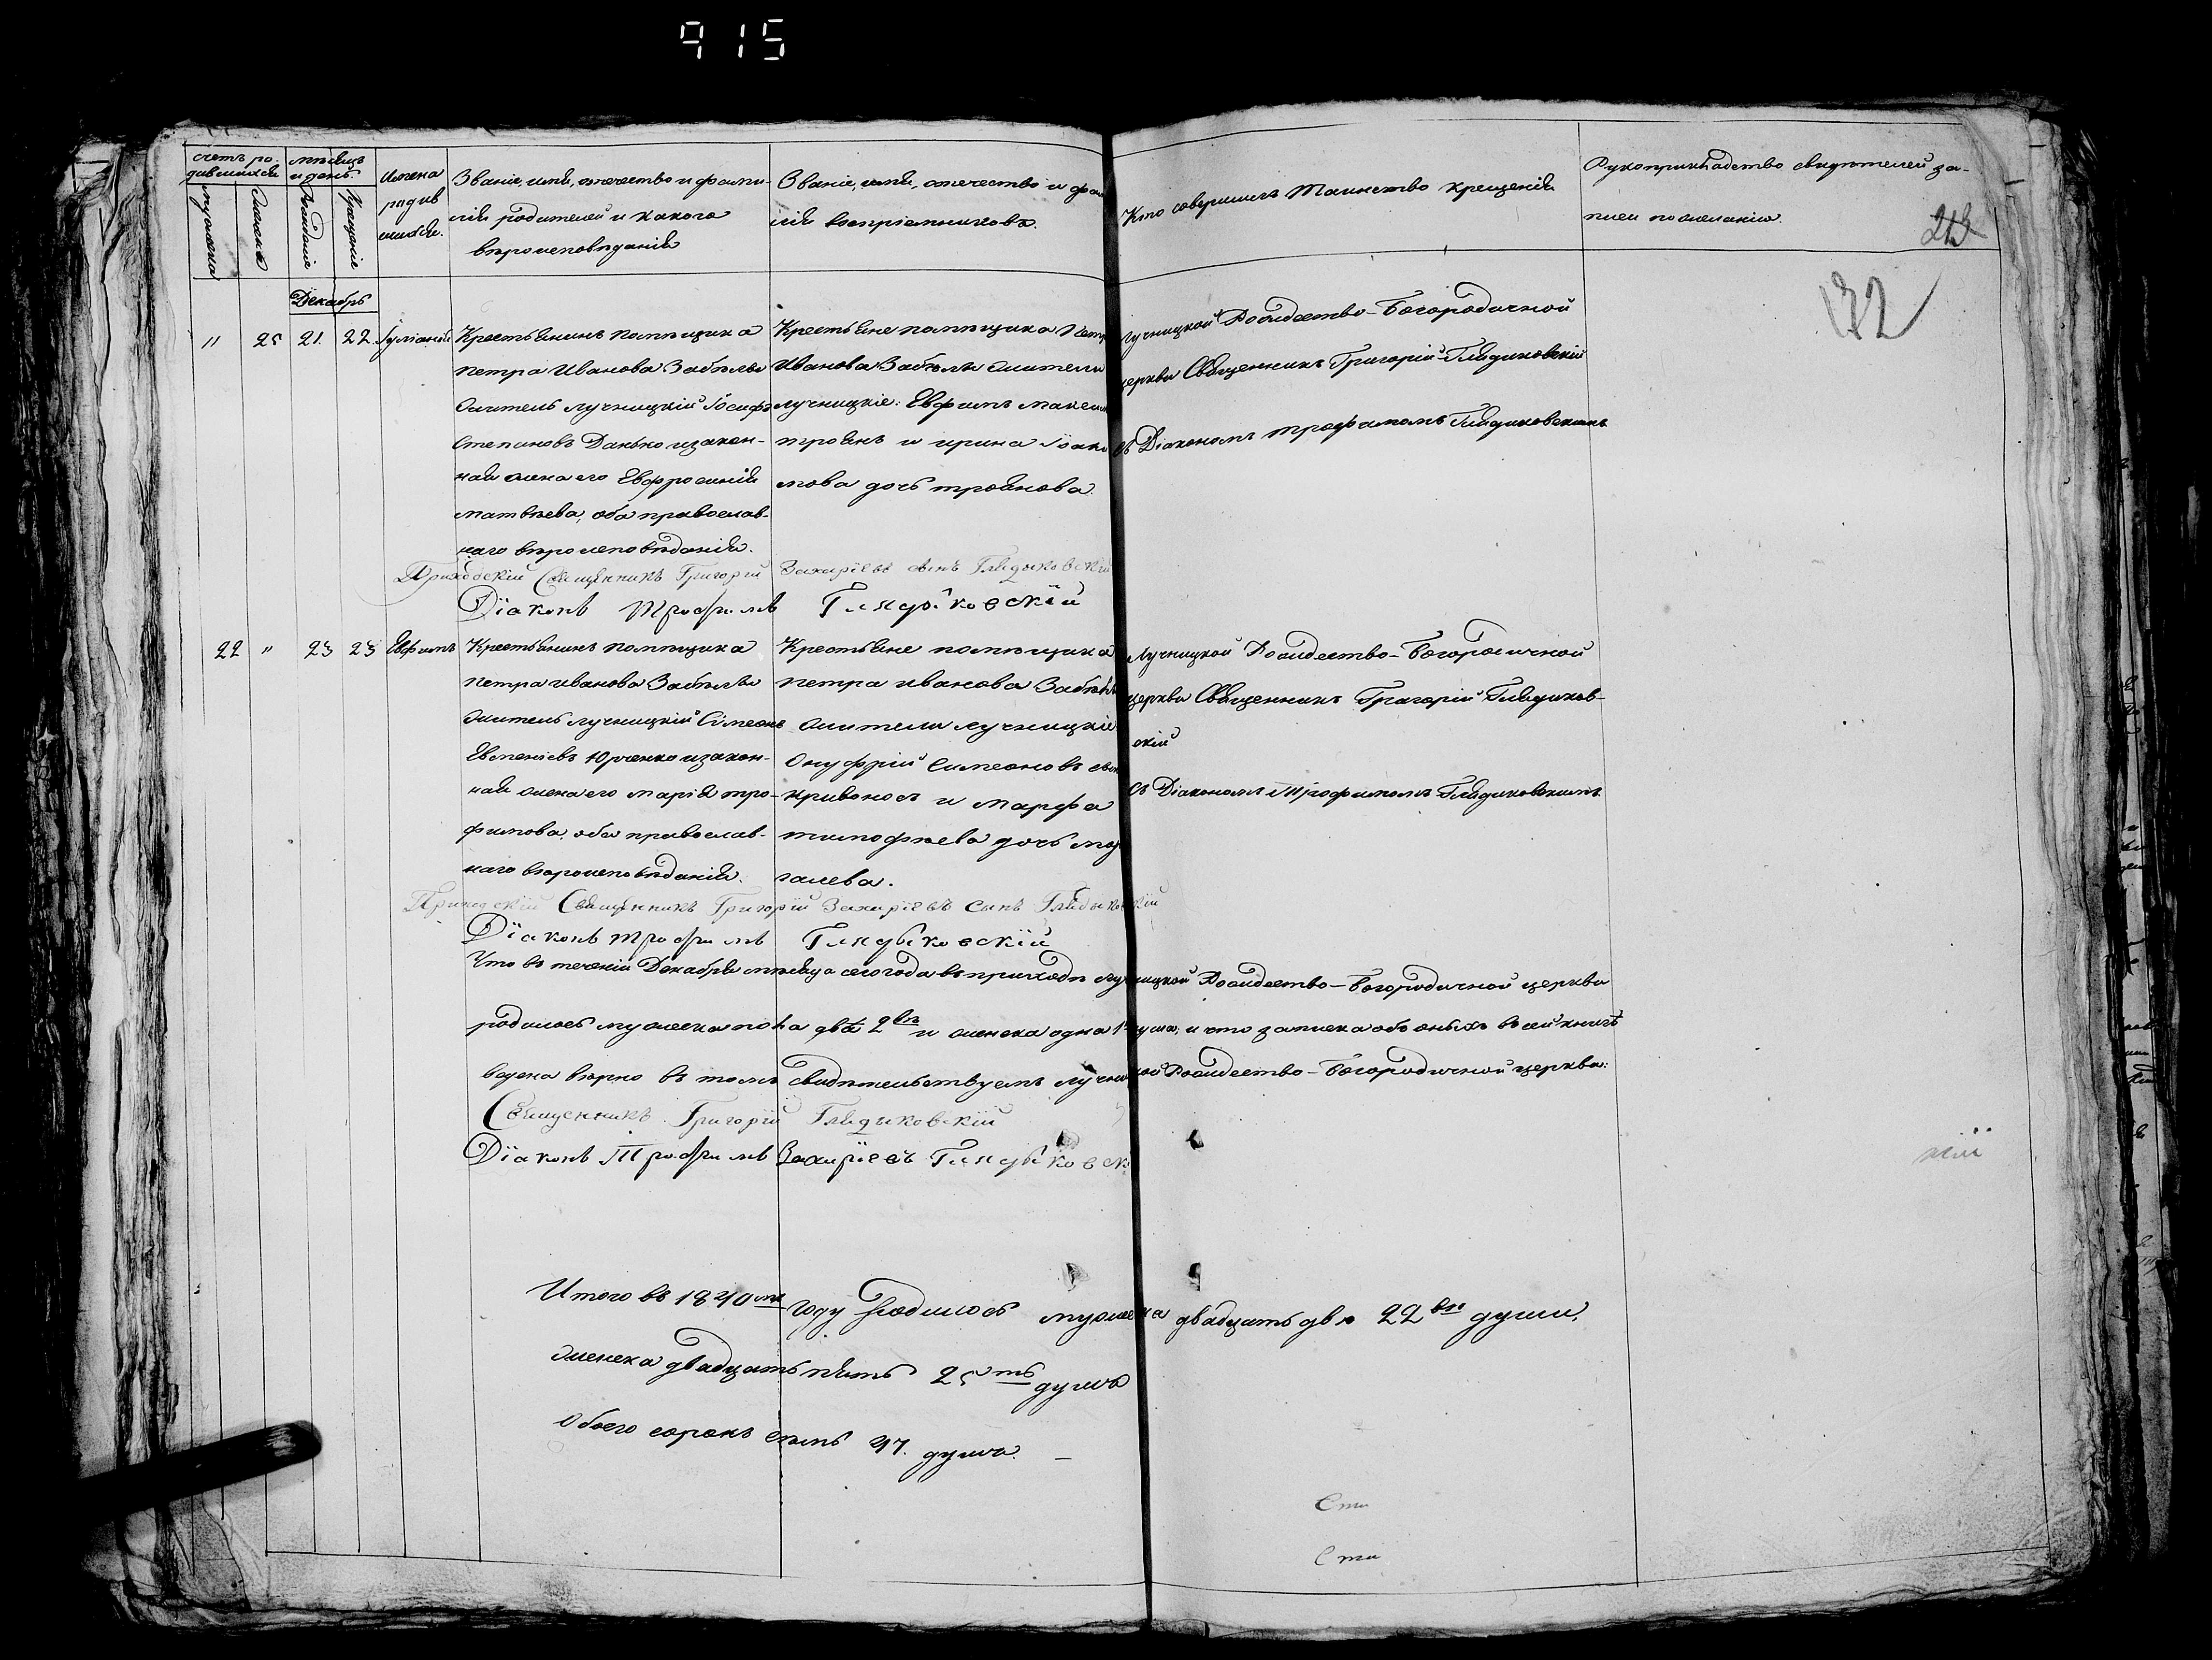 915
Счетъ ро-
дившихся
мѣсяцъ
и день.
Имена
родив
шихся.
Званіе, имя, отчество и фами-
лія родителей и какого
вѣроисповѣданія
Званіе, имя, отчество и фами
лія воспріемниковъ.
Кто совершилъ таинство крещенія
Рукоприкладство свидѣтелей за-
писи по желанію.
мужеска
женска
Рожденіе
Крещеніе
213
172
Декабрь
" 25 21. 22. Іуліанія
Крестьянинъ помѣщика
петра Иванова Забѣлы
житель лучницкій Іосифъ
Степановъ Данько изакон-
ная жена его Евфросинія
матвѣева, оба православ-
наго вѣроисповѣданія.
Крестьяне помѣщика Петра
Иванова Забѣлы жители
лучницкіе: Евфимъ
троянъ и ирина Іоаки
мова дочь троянова.
Лучницкой Рождество-Богородичной
церкви Священникъ Григорій Глядиковскій
съ Діакономъ трофимомъ Глядиковскимъ
Приходскій Священникъ Григорій Захаріевъ сынъ Глядыковскій
Діаконъ Трофимъ Глядыковскій
22 " 23 23 Евфимъ
Крестьянинъ помѣщика
петра иванова Забѣлы
житель лучницкій Симеонъ
Евменіевъ Юрченко изакон-
ная жена его марія тро-
фимова, оба православ-
наго вѣроисповѣданія.
Крестьяне помѣщика
петра иванова Забѣлы
жители лучницкіе
Онуфрій Симеоновъ сынъ
кривоносъ и марфа
тимофѣева дочь
галева.
Лучницкой Рождество-Богородичной
церкви Священникъ Григорій Глядиков-
скій
съ Діакономъ Трофимомъ Глядиковскимъ.
Приходскій Священникъ Григорій Захаріевъ сынъ Глядыковскій
Діаконъ Трофимъ Глядыковскій
Что въ теченіи Декабря мѣсяца сего года въ приходѣ лучницкой Рождество-Богородичной церкви
родилось мужеска пола двѣ 2вѣ и женска одна 1 душа; и что записка объ оныхъ въ сей книгѣ
ведена вѣрно въ томъ свидѣтельствуемъ лучницкой Рождество-Богородичной церкви:
Священникъ Григорій Глядыковскій
Діаконъ Трофимъ Захаріевъ Глядыковскій
Итого въ 1840мъ году родилось мужеска двадцать двѣ 22вѣ души,
женска двадцать пять 25ть душъ
Обоего сорокъ семь 47. душъ. —